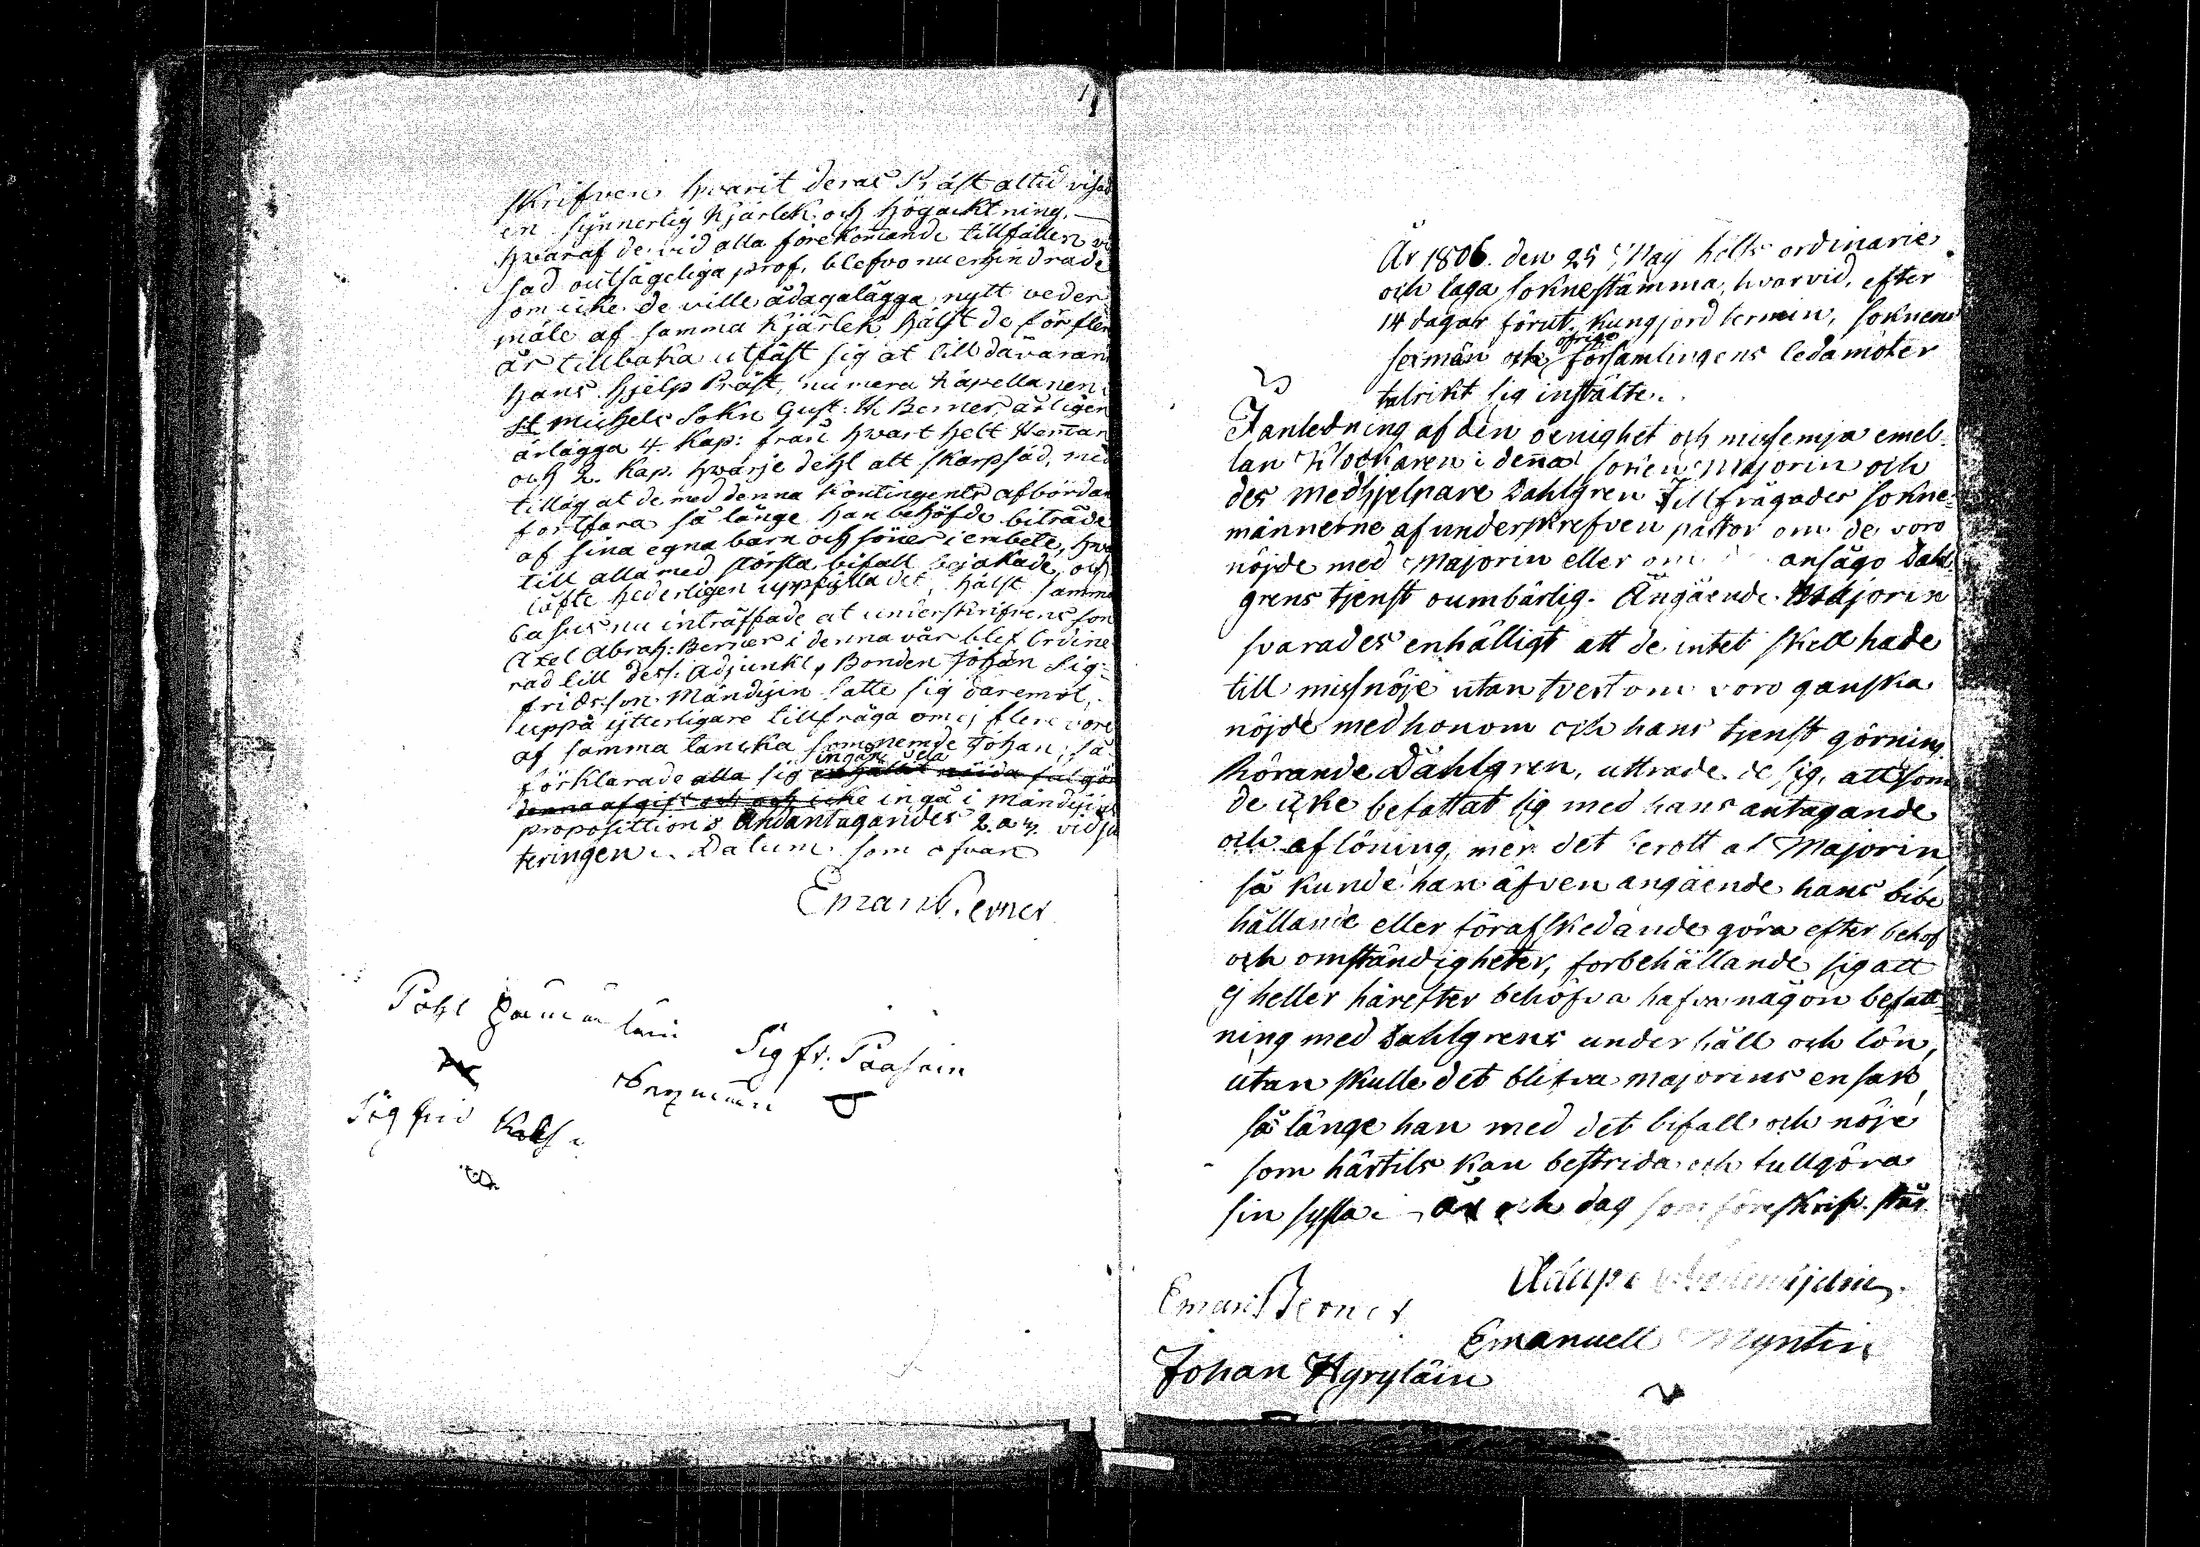 skrifven hvarit deras Präst altid visad
en synnerlig kjärlek och högacktning,
hvaraf de vid alla förekom̄ande tillfällen
sad outsägeliga prof, blefvo nu erhindrade
som icke de ville ådagalägga nytt veder
mäle af samma kjärlek hälst de för fler
år tillbaka utfäst sig at till dåvaran
hans hjelp Präst, nu mera kapellanen i
St Michels Sokn Gust: W. Berner, årligen
ärlägga 4. Kap: från hwart helt Hem̄an
och 2. Kap. hwarje dehl alt skarpsäd, med
tillåg at de med denna kontingents afbördan
fortfara så länge han behöfde biträde
af sina egna barn och söner i embete, hwa
till alla med största bifall bejakade och
löfte hederligen uppfylla det, hälst samma
casus nu inträffade at underskrifvens son
Axel Abrah: Berner i denna vår blef ordine
rad till dess Adjunkt, Bonden Johan Sig=
fridsson Mändyin satte sig däremot,
uppå ytterligare tillfråga om ej flere vore
af samma tancka som nemde Johan, så
ingen dela
förklarade alla sig enhälligt nöjda
denna afgift och och icke ingå i Mändyins
propositition & Andantagandes 2. a 3. vid ju
teringen. Datum som ofvan
Eman Berner
Påhl
Sigfr: Paasoin
Sigfrid
År 1806. den 25 May hölts ordinarie
och laga soknestämma, hvarvid, efter
14 dagar förut kungjord termin, soknens
öfrige
sexmän och församlingens ledamöter
talrikt sig instälte.
I anledning af den oenighet och missemja emel=
lan Klockaren i den̄a soken Majorin och
des medhjelpare Dahlgren tillfrågades sokne=
männerne af underskrefven pastor om de voro
nöjde med Majorin eller om ansågo Dahl=
grens tjenst oumbärlig. Angående Majorin
svarades enhälligt att de intet skell hade
till missnöje utan tvertom voro ganska
nöjde med honom och hans tjenst görning
hörande Dahlgren, uttrade de sig, att som
de icke befattat sig med hans antagande
och aflöning, men det berott af Majorin,
så kunde han äfven angående hans bibe
hållande eller förafskedande göra efter behof
och omständigheter, forbehållande sig att
ej heller härefter behöfva hafva någon befatt=
ning med Dahlgrens underhåll och lön,
utan skulle det blifva Majorins ensak
så länge han med det bifall och nöje
som härtils kan bestrida och fullgöra
sin syssla. År och dag som föreskrif. står
Eman Berner
Emanuell Myntin
Johan Hyryläin